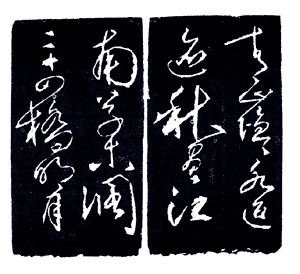 青山隱〻水迢
迢秋盡江
南草木凋
二十四橋明月